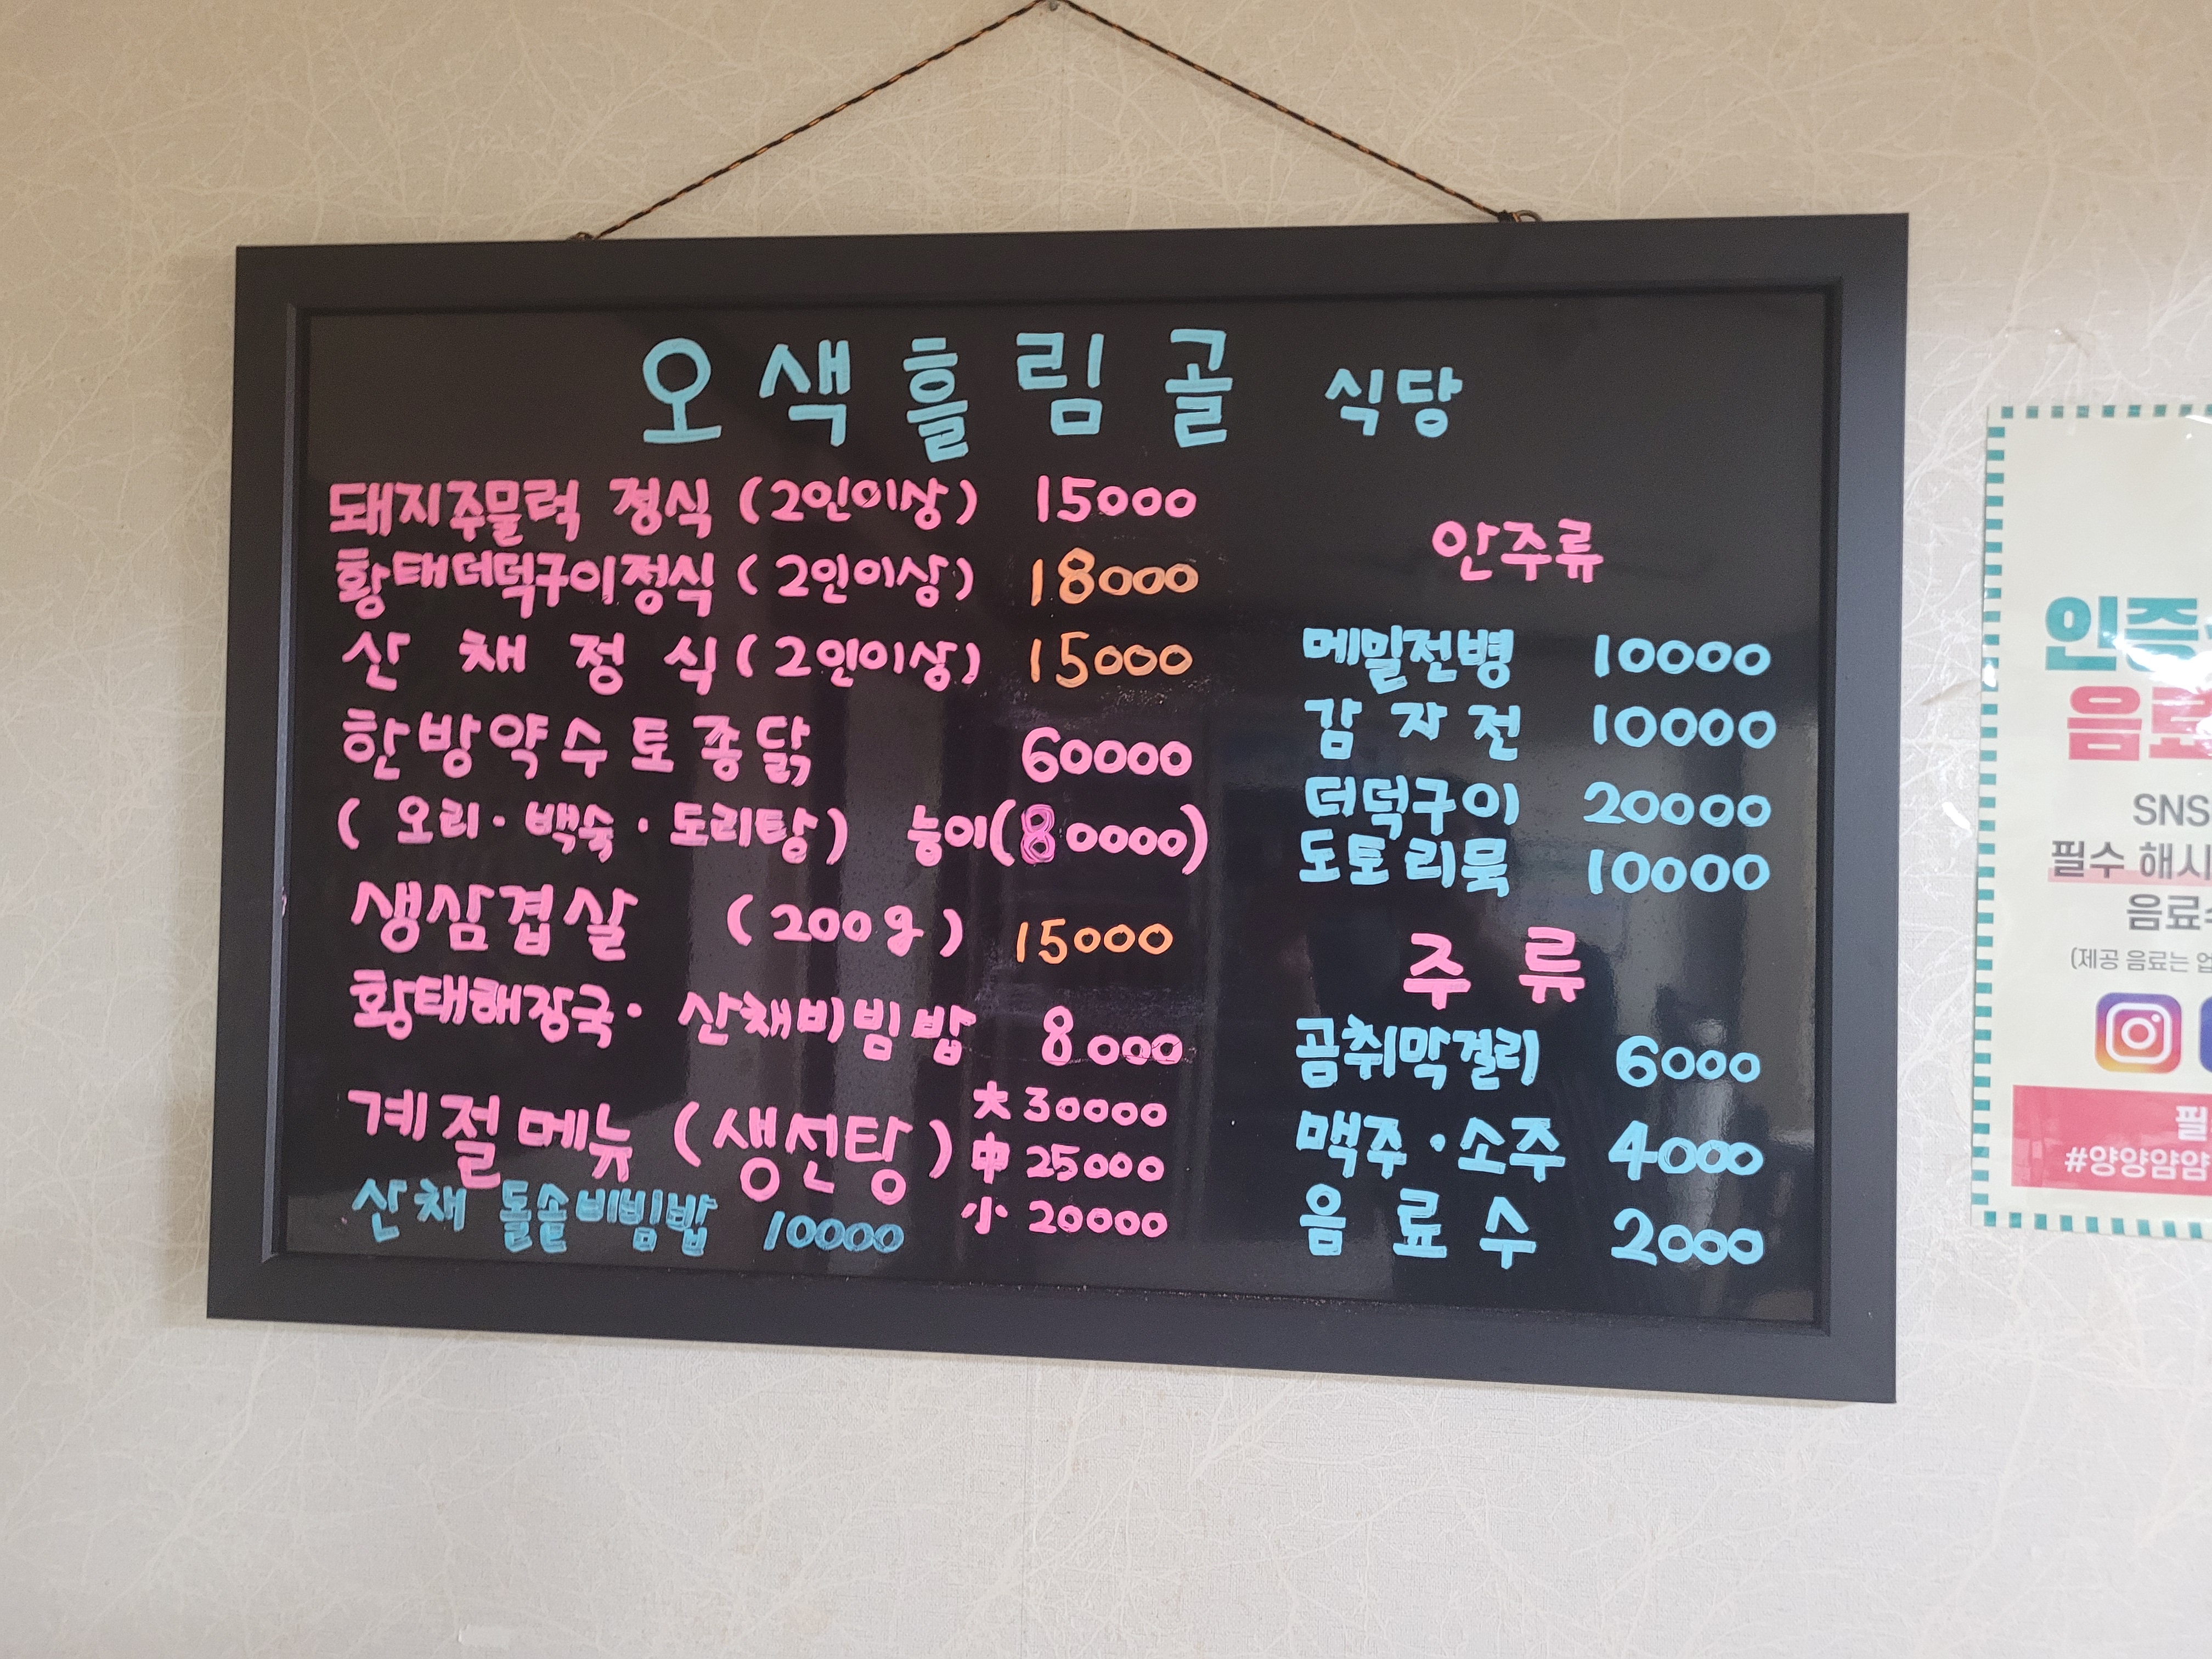 오색흘림골 식당
돼지주물럭 정식 (2인이상) 15000
황태더덕구이정식 (2인이상) 18000
산채정식 (2인이상) 15000
한방약수토종닭 60000
(오리·백숙·도리탕) 능이(80000)
생삼겹살 (200g) 15000
황태해장국· 산채비빔밥 8000
계절메뉴 (생선탕) 大 30000
中 25000
小 20000
산채 돌솥비빔밥 10000
안주류
메밀전병 10000
감자전 10000
더덕구이 20000
도토리묵 10000
주류
곰취막걸리 6000
맥주·소주 4000
음료수 2000
인증
음료
SNS
필수 해시
음료
(제공 음료는 업
필
#양양얌얌